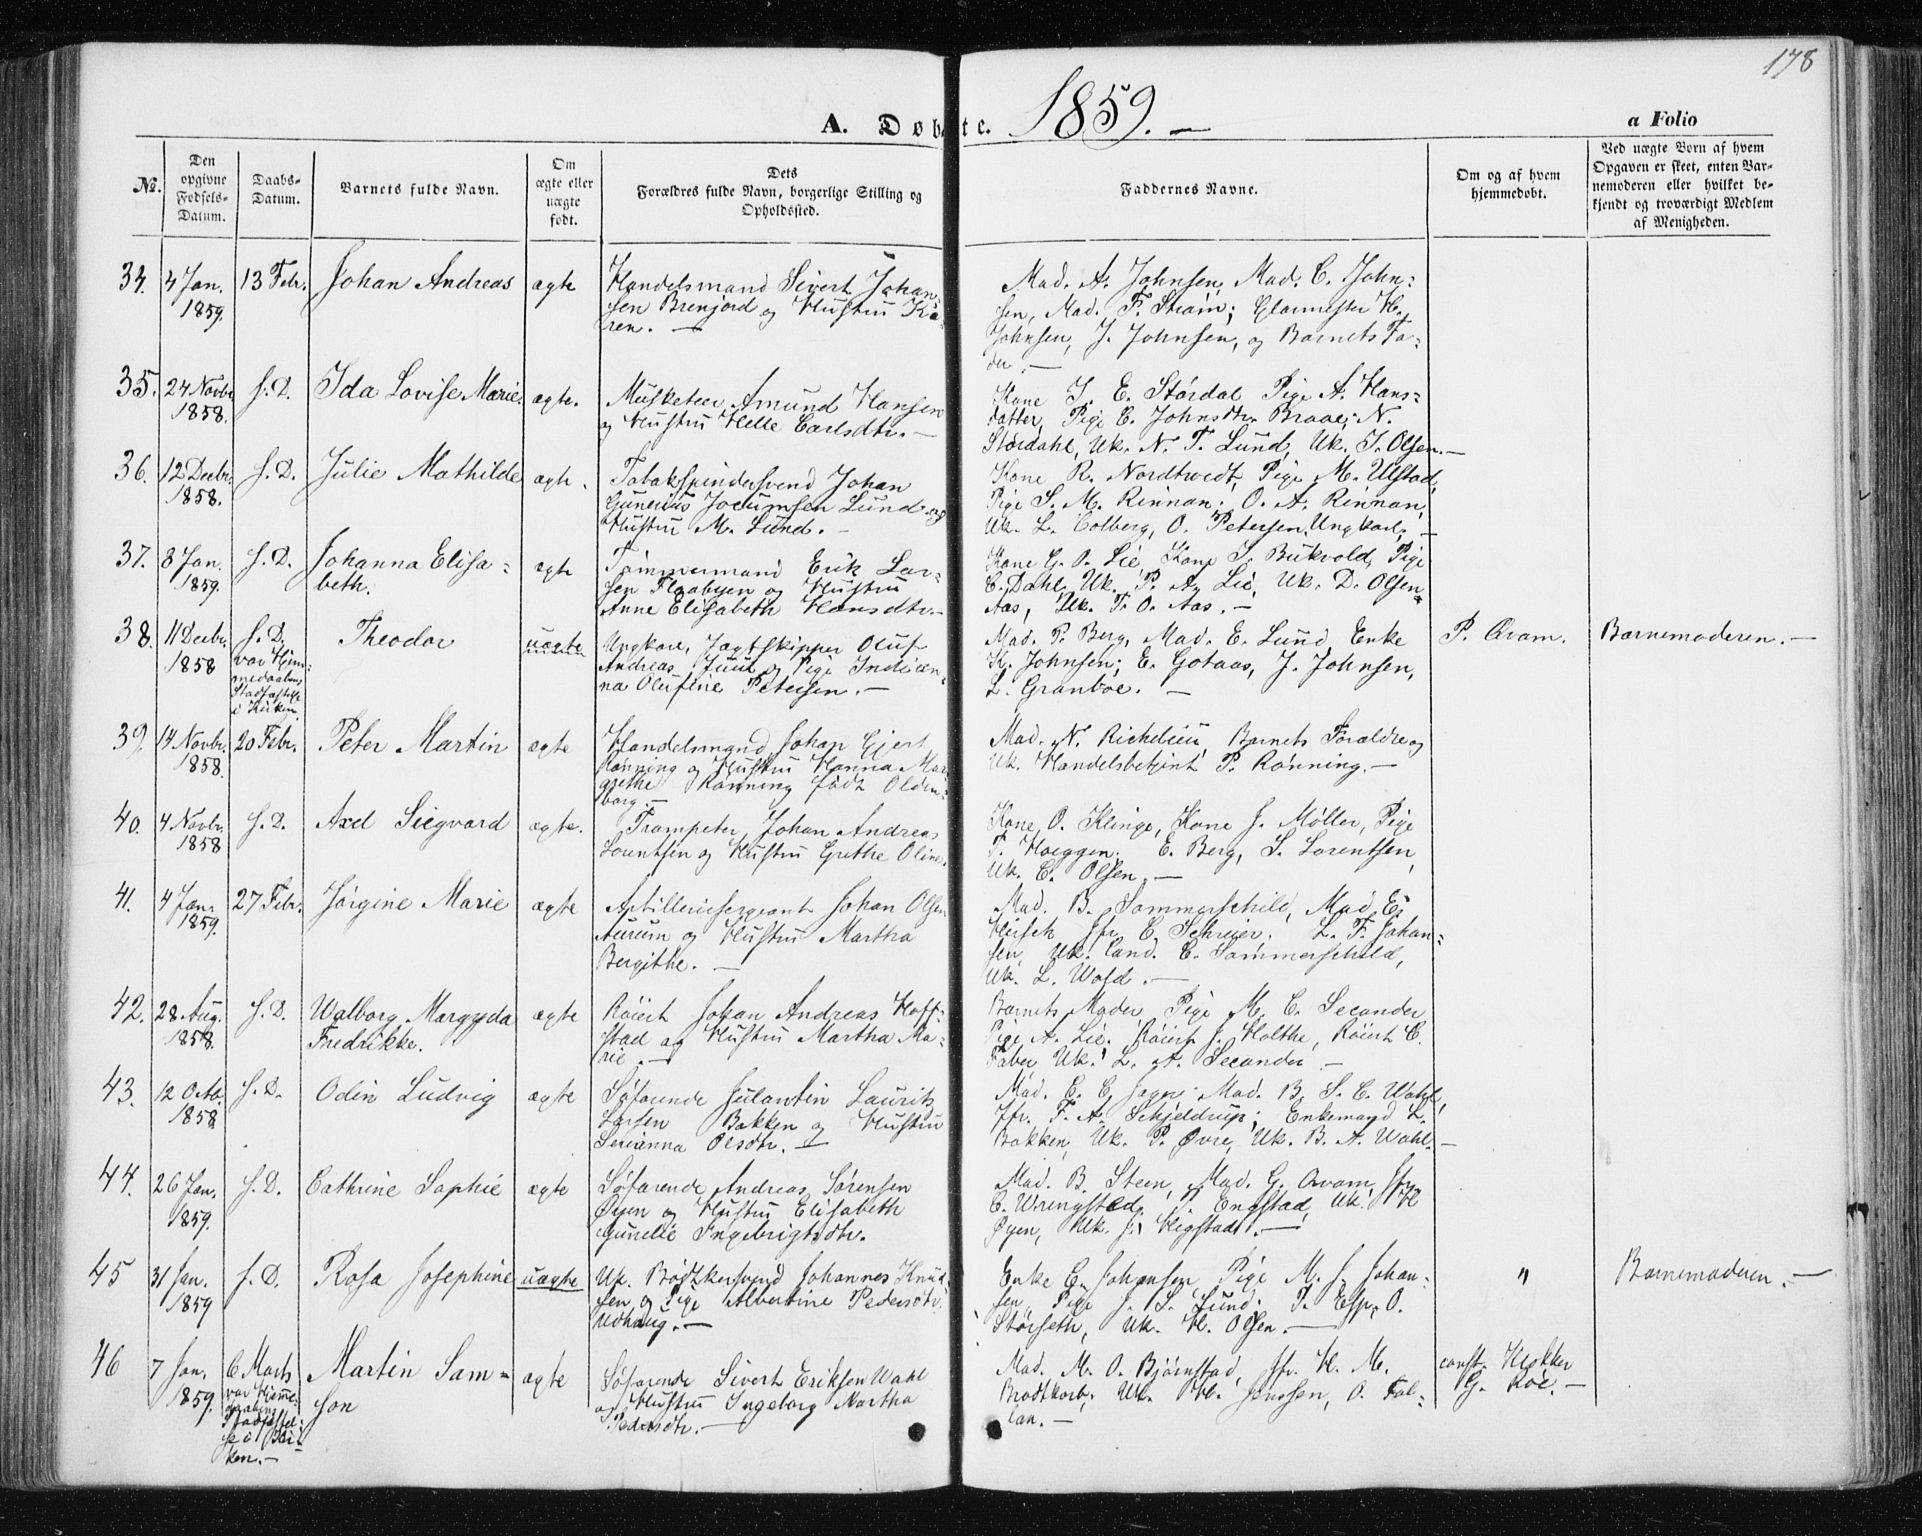 178
A. Døbte. 1859. —
a Folio
№.
Den opgivne Fødsels-Datum.
Daabs-Datum.
Barnets fulde Navn.
Om ægte eller uægte født.
Dets
Forældres fulde Navn, borgerlige Stilling og
Opholdssted.
Faddernes Navne.
Om og af hvem
hjemmedøbt.
Ved uægte Born af hvem
Opgaven er skeet, enten Bar-
nemoderen eller hvilket be-
kjendt og troværdigt Medlem
af Menigheden.
34. 4 Jan. 1859. 13 Febr. Johan Andreas ægte
Handelsmand Sivert Johan-
sen Brenjord og Hustru Ka-
ren. —
Mad. A. Johnsen, Mad. C. John-
sen, Mad. F. Strøm; Glarmester H.
Johnsen, J. Johnsen, og Barnets Fa-
der. —
35. 24 Novbr 1858. s. D. Ida Lovise Marie ægte.
Musketeer Amund Hansen
og Hustru Helle Carlsdtr. —
Kone J. E. Stördal Pige A. Hans-
datter, Pige C. Johnsdtr. Braae; N.
Størdahl, Uk. N. T. Lund, Uk. J. Olsen. —
36. 12 Decbr. 1858. s. D. Julie Mathilde ægte.
Tobakspindersvend Johan
Gunerius Jocumsen Lund og
Hustru M. Lund. —
Kone R. Nordtvedt, Pige M. Ulstad,
Pige S. M. Rinnan; O. A. Rinnan,
Uk. L. Colberg, O. Petersen, Ungkarl. —
37. 8 Jan. 1859. s. D. Johanna Elisa-
beth. ægte
Tømmermand Erik Lar-
sen Flaabyen og Hustru
Anne Elisabeth Hansdtr. —
Kone G. O. Lie Kone J. Bukvold, Pige
C. Dahl, Uk. P. A. Lie, Uk. D. Olsen-
Aas, Uk. T. O. Aas. —
38. 11 Decbr. 1858 s. D.
var Hjem-
medaabens
Stadfæstelse
i Kirken. Theodor uægte
Ungkarl, Jagtskipper Oluf
Andreas Juul og Pige Indian-
na Olufine Petersen. —
Mad. P. Berg, Mad. E. Lund, Enke
K. Johnsen; E. Gotaas, J. Johnsen,
L. Granboe. —
P. Qvam. Barnemoderen. —
39. 14 Novbr. 1858. 20 Febr. Peter Martin ægte
Handelsmand Johan Gjert
Rønning og Hustru Hanna Mar-
grethe Rønning født Olden-
borg. —
Mad. N. Richelieu, Barnets Forældre og
Uk. Handelsbetjent P. Rønning. —
40. 4 Novbr. 1858 s. D. Axel Siegvard ægte.
Trompeter Johan Andreas
Lorentsen og Hustru Grethe Oline.
Kone O. Klinge, Kone J. Møller, Pige
T. Hoeggen; E. Berg, S. Lorentsen,
Uk. C. Olsen. —
41. 4 Jan. 1859. 27 Febr. Jørgine Marie ægte
Artilleriesergeant Johan Olsen
Aurum og Hustru Martha
Bergithe. —
Mad. B. Sommerschild, Mad. E.
Hirsch Jfr. C. Schreier. L. F. Johan-
sen, Uk. Cand. C. Sommerschild,
Uk. L. Wold. —
42. 28 Aug. 1858. s. D. Walborg Margyda
Fredrikke. ægte
Røiert Johan Andreas Hoff-
stad og Hustru Martha Ma-
rie. —
Barnets Moder Pige M. C. Secander
Pige A. Lie. Røiert J. Holthe, Røiert C.
Faber Uk. L. A. Secander —
43. 12 Octb. 1858 s. D. Odin Ludvig ægte
Søfarende Julantin Laurits
Larsen Bakken og Hustru
Serianna Olsdtr. —
Mad. C. C. Sogn; Mad. B. S. C. Wahl,
Jfr. F. A. Schjeldrup; Enkemand L.
Bakken, Uk. P. Øvre, Uk. B. A. Wahl. —
44. 26 Jan. 1859. s. D. Cathrine Sophie ægte
Søfarende Andreas Sørensen
Øyen og Hustru Elisabeth
Gurelie Ingebrigtsdtr.
Mad. B. Steen, Mad. G. Qvam, Jfr
C. Wringsted, P. Engstad, Uk. H
Øyen, Uk. J. Hegstad. —
45 31 Jan. 1859 s. D. Rosa Josephine uægte
Uk. Bødkersvend Johannes Knud-
sen og Pige Albertine Pedersdtr.
Udhaug. —
Enke C. Johansen, Pige M. J. Johan-
sen, Pige J. L. Lund; T. Esp, O.
Størseth, Uk. H. Olsen. —
" Barnemoderen. —
46 7 Jan. 1859. 6 Marts
var Hjemme-
daabens
Stadfæstel-
se i Kir-
ken. — Martin Sam-
son ægte
Søfarende Sivert Eriksen Wahl
og Hustru Ingeborg Martha
Pedersdtr. —
Mad. M. O. Bjørnstad, Jfr. H. M.
Brodtkorb, Uk. H. Jenssen, O. Fal-
lan. —
const. Klokker
G. Roe. —